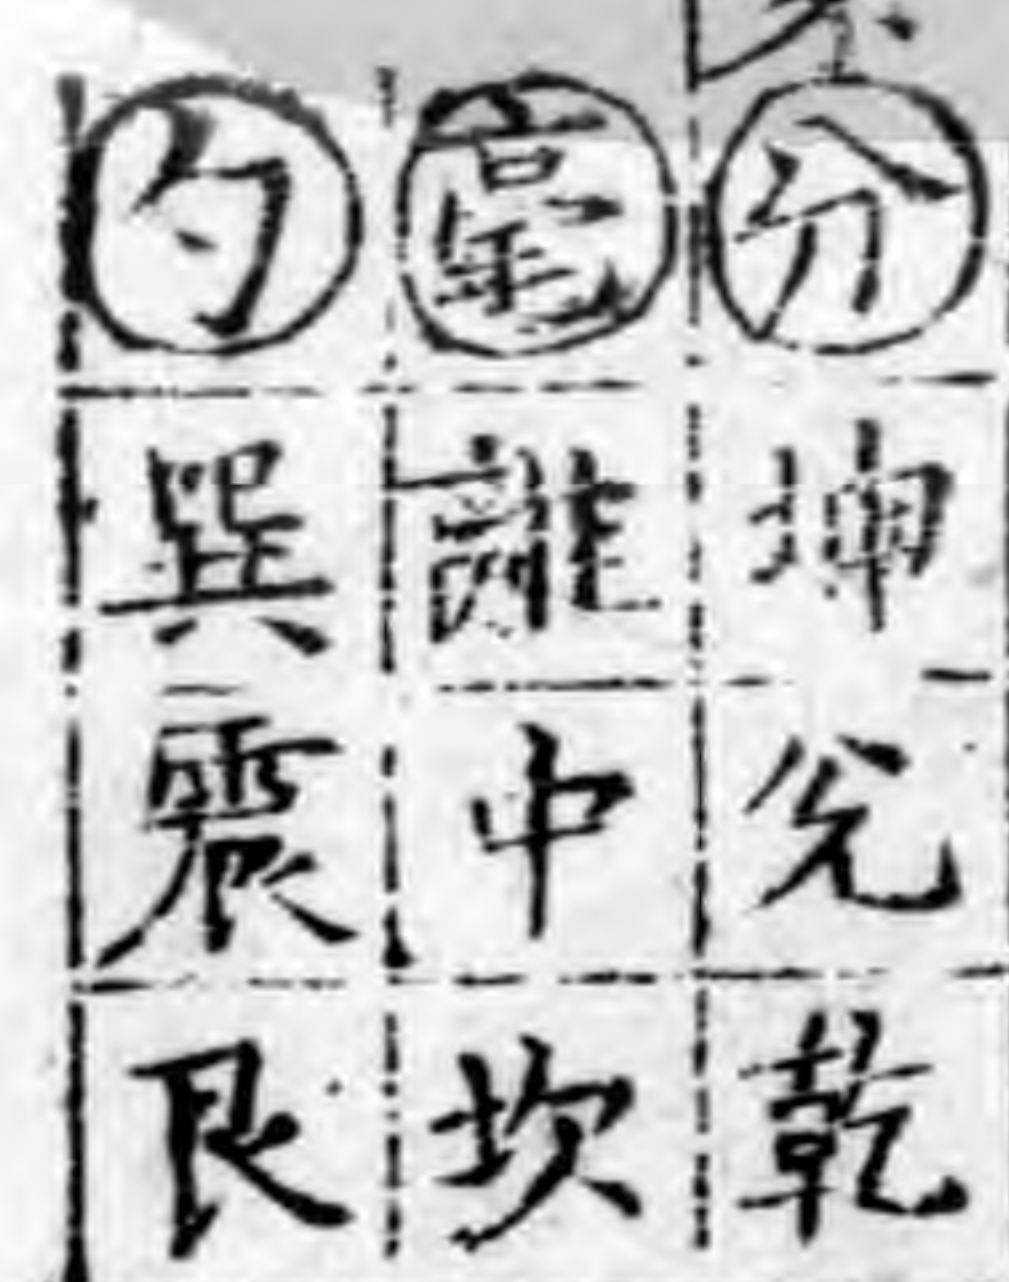 分坤兊乾
毫離中坎
勺巽震艮